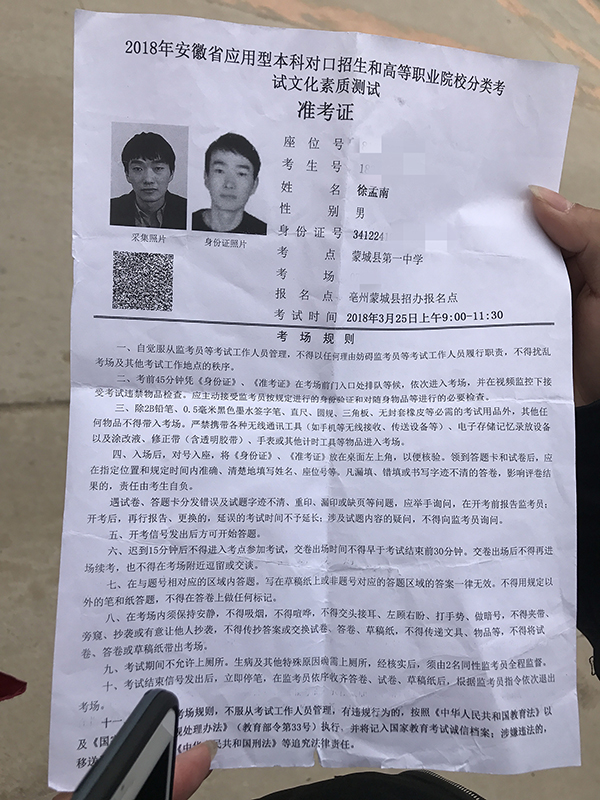 2018年安徽省应用型本科对口招生和高等职业院校分类考
试文化素质测试
准考证
座位号
考生号 18
姓名 徐孟南
性别 男
身份证号 341224
考点 蒙城县第一中学
考场
报名点 亳州蒙城县招办报名点
考试时间 2018年3月25日上午9:00-11:30
采集照片 身份证照片
考场规则
一、自觉服从监考员等考试工作人员管理，不得以任何理由妨碍监考员等考试工作人员履行职责，不得扰乱
考场及其他考试工作地点的秩序。
二、考前45分钟凭《身份证》、《准考证》在考场前门入口处排队等候，依次进入考场，并在视频监控下接
受考试违禁物品检查。应主动接受监考员按规定进行的身份验证和对随身物品等进行的必要检查。
三、除2B铅笔、0.5毫米黑色墨水签字笔、直尺、圆规、三角板、无封套橡皮等必需的考试用品外，其他任
何物品不得带入考场。严禁携带各种无线通讯工具（如手机等无线接收、传送设备等）、电子存储记忆录放设备
以及涂改液、修正带（含透明胶带）、手表或其他计时工具等物品进入考场。
四、入场后，对号入座，将《身份证》、《准考证》放在桌面左上角，以便核验。领到答题卡和试卷后，应
在指定位置和规定时间内准确、清楚地填写姓名、座位号等。凡漏填、错填或书写字迹不清的答卷，影响评卷结
果的，责任由考生自负。
遇试卷、答题卡分发错误及试题字迹不清、重印、漏印或缺页等问题，应举手询问，在开考前报告监考员；
开考后，再行报告、更换的，延误的考试时间不予延长；涉及试题内容的疑问，不得向监考员询问。
五、开考信号发出后方可开始答题。
六、迟到15分钟后不得进入考点参加考试，交卷出场时间不得早于考试结束前30分钟。交卷出场后不得再进
场续考，也不得在考场附近逗留或交谈。
七、在与题号相对应的区域内答题。写在草稿纸上或非题号对应的答题区域的答案一律无效。不得用规定以
外的笔和纸答题，不得在答卷上做任何标记。
八、在考场内须保持安静，不得吸烟，不得喧哗，不得交头接耳、左顾右盼、打手势、做暗号，不得夹带、
旁窥、抄袭或有意让他人抄袭，不得传抄答案或交换试卷、答卷、草稿纸，不得传递文具、物品等，不得将试
卷、答卷或草稿纸带出考场。
九、考试期间不允许上厕所。生病及其他特殊原因确需上厕所，经核实后，须由2名同性监考员全程监督。
十、考试结束信号发出后，立即停笔，在监考员依序收齐答卷、试卷、草稿纸后，根据监考员指令依次退出
考场。
十一 考场规则，不服从考试工作人员管理，有违规行为的，按照《中华人民共和国教育法》以
及《国家 规处理办法》（教育部令第33号）执行，并将记入国家教育考试诚信档案；涉嫌违法的，
移送 《中华人民共和国刑法》等追究法律责任。